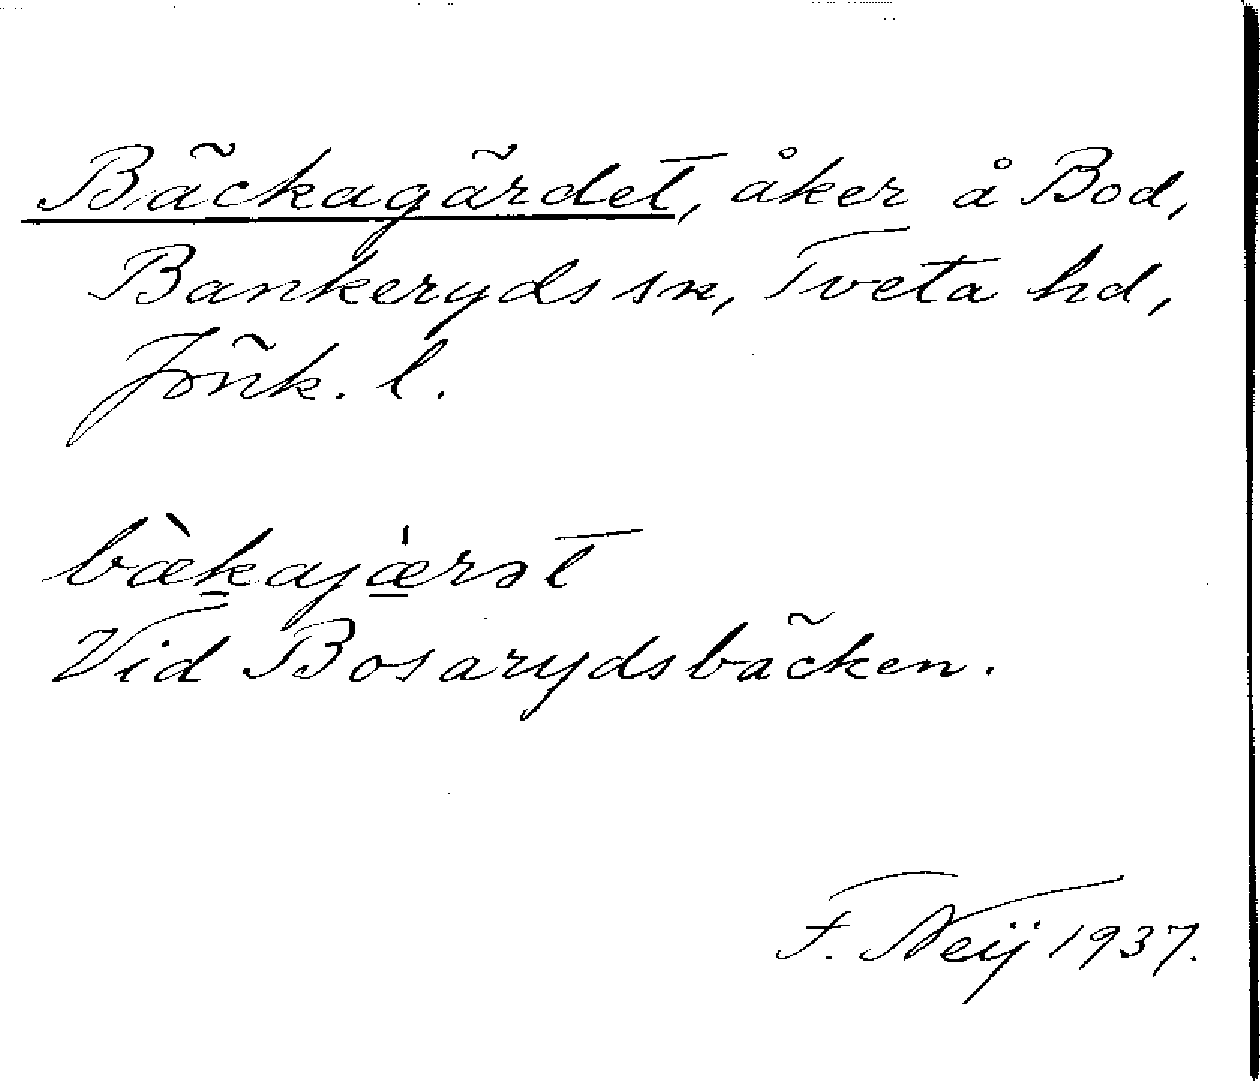 Bäckagärdet, åker å Bod,
Bankeryds sn, Tveta hd,
Jönk. l.
bæ̀k̲ajæ̲̍rət
Vid Bosarydsbäcken.
F. Neij 1937.